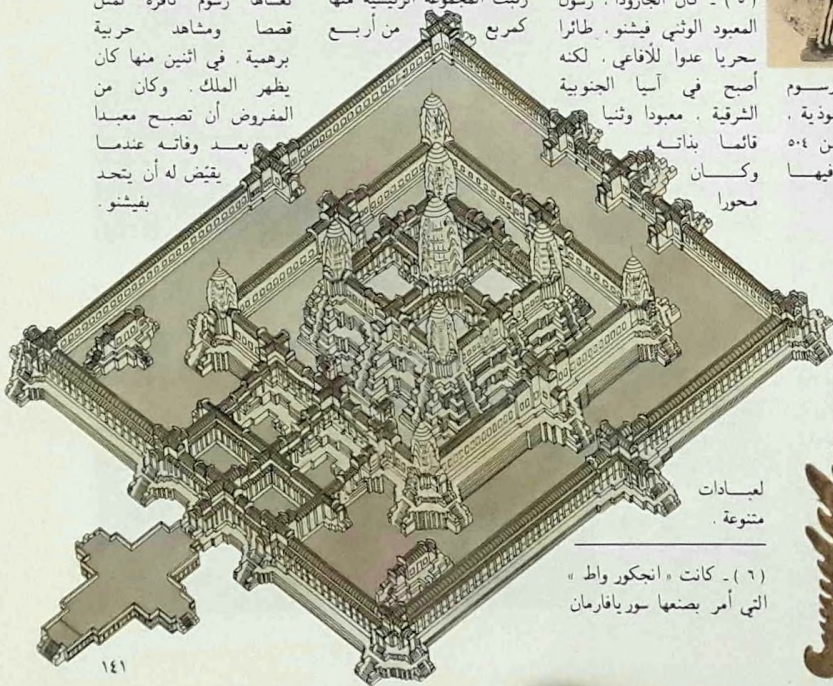 (٥) ـ كان الجارودا، رسول
المعبود الوثني فيشنو، طائرا
سحريا عدوا للأفاعي. لكنه
أصبح في آسيا الجنوبية
الشرقية، معبودا وثنيا
قائما بذاته
وكان
محورا
لعبادات
متنوعة.
(٦) ـ كانت «انجكور واط»
التي أمر بصنعها سوريافارمان
رتبت المجموعة الرئيسية منها
كمربع من أربع
رسوم نافرة تمثل
قصصا ومشاهد حربية
برهمية. في اثنين منها كان
يظهر الملك. وكان من
المفروض أن تصبح معبدا
بعد وفاته عندما
يقيّض له أن يتحد
بفيشنو.
رسوم
من ٥٠٤
فيها
١٤١